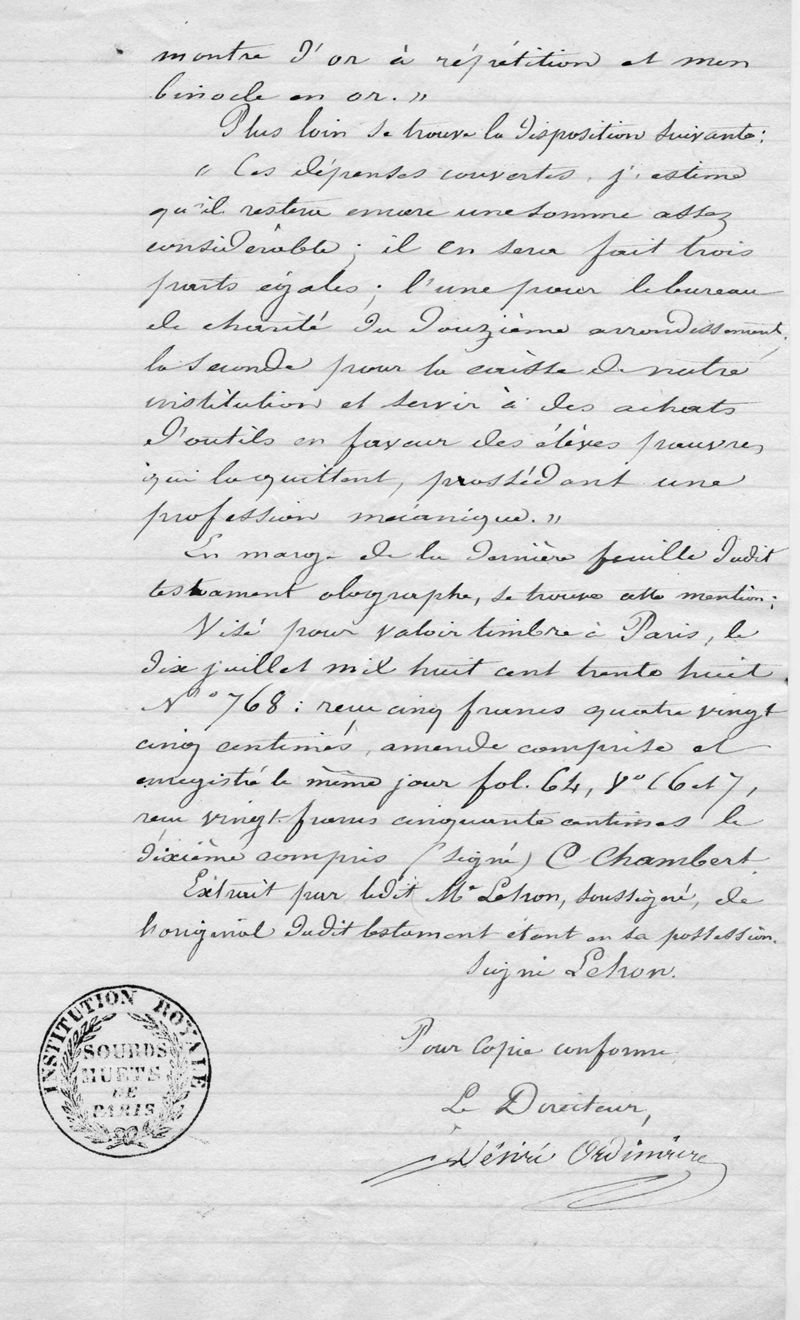 montre d'or à répétition et mon
binocle en or. »
Plus loin se trouve la disposition suivante:
« Ces dépenses couvertes, j'estime
qu'il restera encore une somme assez
considérable; il en sera fait trois
parts égales; l'une pour le bureau
de charité du douzième arrondissement,
la seconde pour la caisse de notre
institution et servir à des achats
d'outils en faveur des élèves pauvres,
qui la quittent, possédant une
profession mécanique. »
En marge de la dernière feuille dudit
testament olographe, se trouve cette mention:
Visé pour valoir timbre à Paris, le
dix juillet mil huit cent trente huit
N° 768: reçu cinq francs quatre vingt
cinq centimes, amende comprise et
enregistré le même jour fol. 64, V° C 6 et 7,
reçu vingt francs cinquante centimes le
dixième compris (signé) C Chambert.
Extrait par ledit Me Lehon, soussigné, de
l'original dudit testament étant en sa possession.
Signé Lehon.
Pour copie conforme
Le Directeur,
Désiré Ordinaire
INSTITUTION ROYALE
SOURDS
MUETS
DE
PARIS